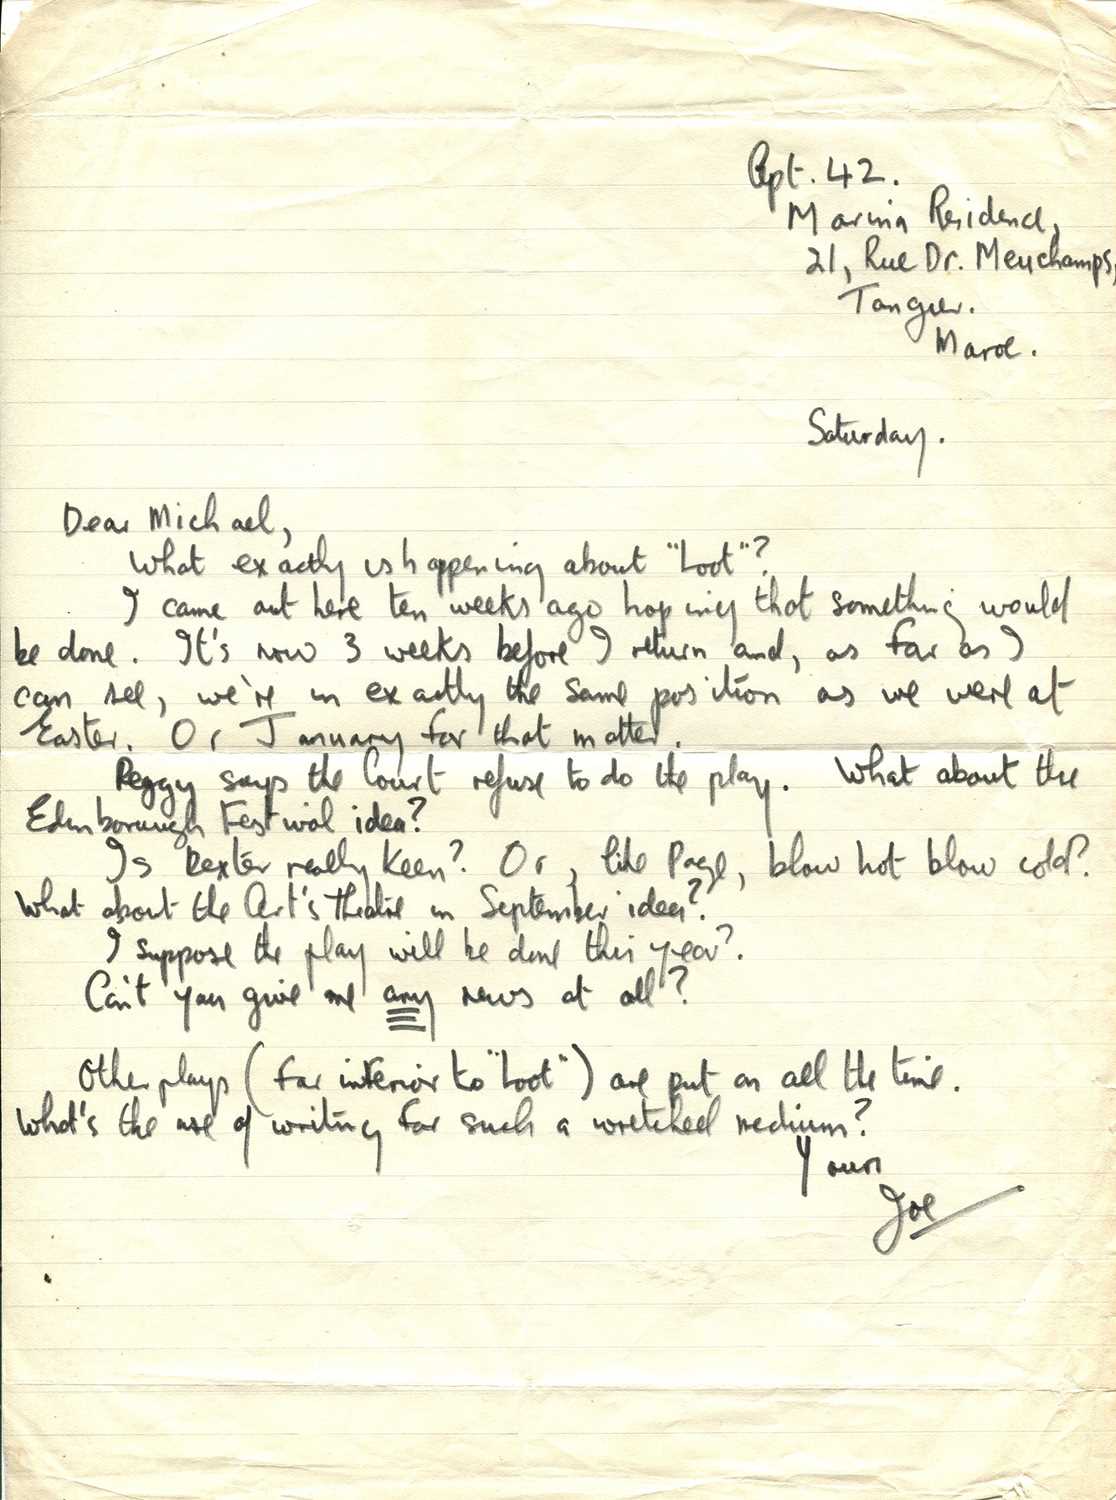 Apt. 42.
Marina Residence,
21, Rue Dr. Meuchamps,
Tangier.
Maroc.
Saturday.
Dear Michael,
What exactly is happening about "Loot"?
I came out here ten weeks ago hoping that something would
be done. It's now 3 weeks before I return and, as far as I
can see, we're in exactly the same position as we were at
Easter. Or January for that matter.
Peggy says the Court refuse to do the play. What about the
Edinborough Festival idea?
Is Dexter really keen? Or, like Page, blow hot blow cold?
What about the Art's Theatre in September idea?
I suppose the play will be done this year?
Can't you give me any news at all?
Other plays (far inferior to "Loot") are put on all the time.
What's the use of writing for such a wretched medium?
Yours
Joe